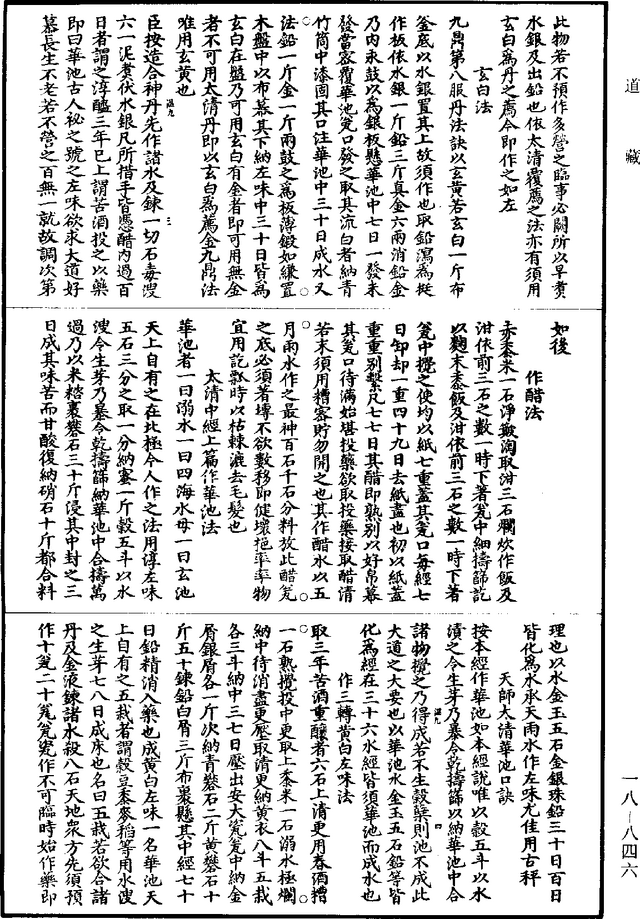 道藏
此物若不預作多營之臨事必闕所以早責
水銀及出鉛也依太清覆薦之法亦有須用
玄白為丹之薦今即作之如左
玄白法
九鼎第八服丹法訣以玄黃若玄白一斤布
釜底以水銀置其上故須作也取鉛瀉為挺
作板依水銀一斤鉛三斤真金六兩消鉛金
乃內永鼓以為銀板懸華池中七日一發未
發當密覆華池瓮口發之取其流白者納青
竹筒中漆固其口注華池中三十日成水又
法鉛一斤金一斤兩鼓之為板薄鍛如縑置
木盤中以布幕其下納左味中三十日皆為
玄白在盤乃可用玄白有金者即可用無金
者不可用太清丹即以玄白為薦金九鼎法
唯用玄黃也
臣按造合神丹先作諸水及鍊一切石毒溲
六一泥黃伏水銀凡所措手皆憑醋內過百
日者謂之淳醯三年已上謂苦酒投之以藥
即曰華池古人祕之號之左味欲求大道好
慕長生不老若不營之百無一就故調次第
如後
作醋法
赤黍米一石淨皺淘取泔三石爛炊作飯及
泔依前三石之數一時下著瓮中細擣篩訖
以麴末黍飯及泔依前三石之數一時下著
瓮中攪之使均以紙七重蓋其瓮口每經七
日卸却一重四十九日去紙盡也初以紙蓋
重重別繫凡七七日其醋即熟別以好帛幕
其瓮口待滿始堪投藥欲取投藥接取醋清
若末須用糟密貯勿開之也其作醋水以五
月雨水作之最神百石千石分料放此醋瓮
之底必須著塼不欲數移即健壞拖牽率物
宜用訖瓢時以枯棘漉去毛髮也
太清中經上篇作華池法
華池者一曰溺水一曰四海水母一曰玄池
天上自有之在北極令人作之法用淳左味
五石三分之取一分納蜜一斤穀五斗以水
溲令生芽乃暴令乾擣篩納華池中合擣萬
過乃以米糌裹礬石三十斤浸其中封之三
日成其味苦而甘酸復納硝石十斤都合料
理也以水金玉五石金銀珠鉛三十日百日
皆化為水承天雨水作左味尤佳用古秤
天師太清華池口訣
按本經作華池如本經說唯以穀五斗以水
漬之令生芽乃暴令乾擣篩以納華池中合
諸物攪之乃得成若不生穀蘖則池不成此
大道之大要也以華池水金玉五石鉛等皆
化為經在三十六水經皆須華池而成水也
作三轉黃白左味法
取三年苦酒重釀者六石上清更用春酒糟
一石熟攪投中更取上黍米一石溺水極爛
納中待消盡更壓取清更納黃衣八斗五栽
各三斗納中三七日壓出安大瓮瓮中納金
屑銀屑各一斤次納青礬石二斤黃礬石十
斤五十鍊鉛白屑三斤布裹懸其中經七十
日鉛精消入藥也成黃白左味一名華池天
上自有之五栽者謂穀豆黍麥稻等用水溲
之生芽七八日成床也名曰五栽若欲合諸
丹及金液鍊諸水殺八石天地眾方先須預
作十瓮二十瓮瓮瓷作不可臨時始作藥即
一八—八四六